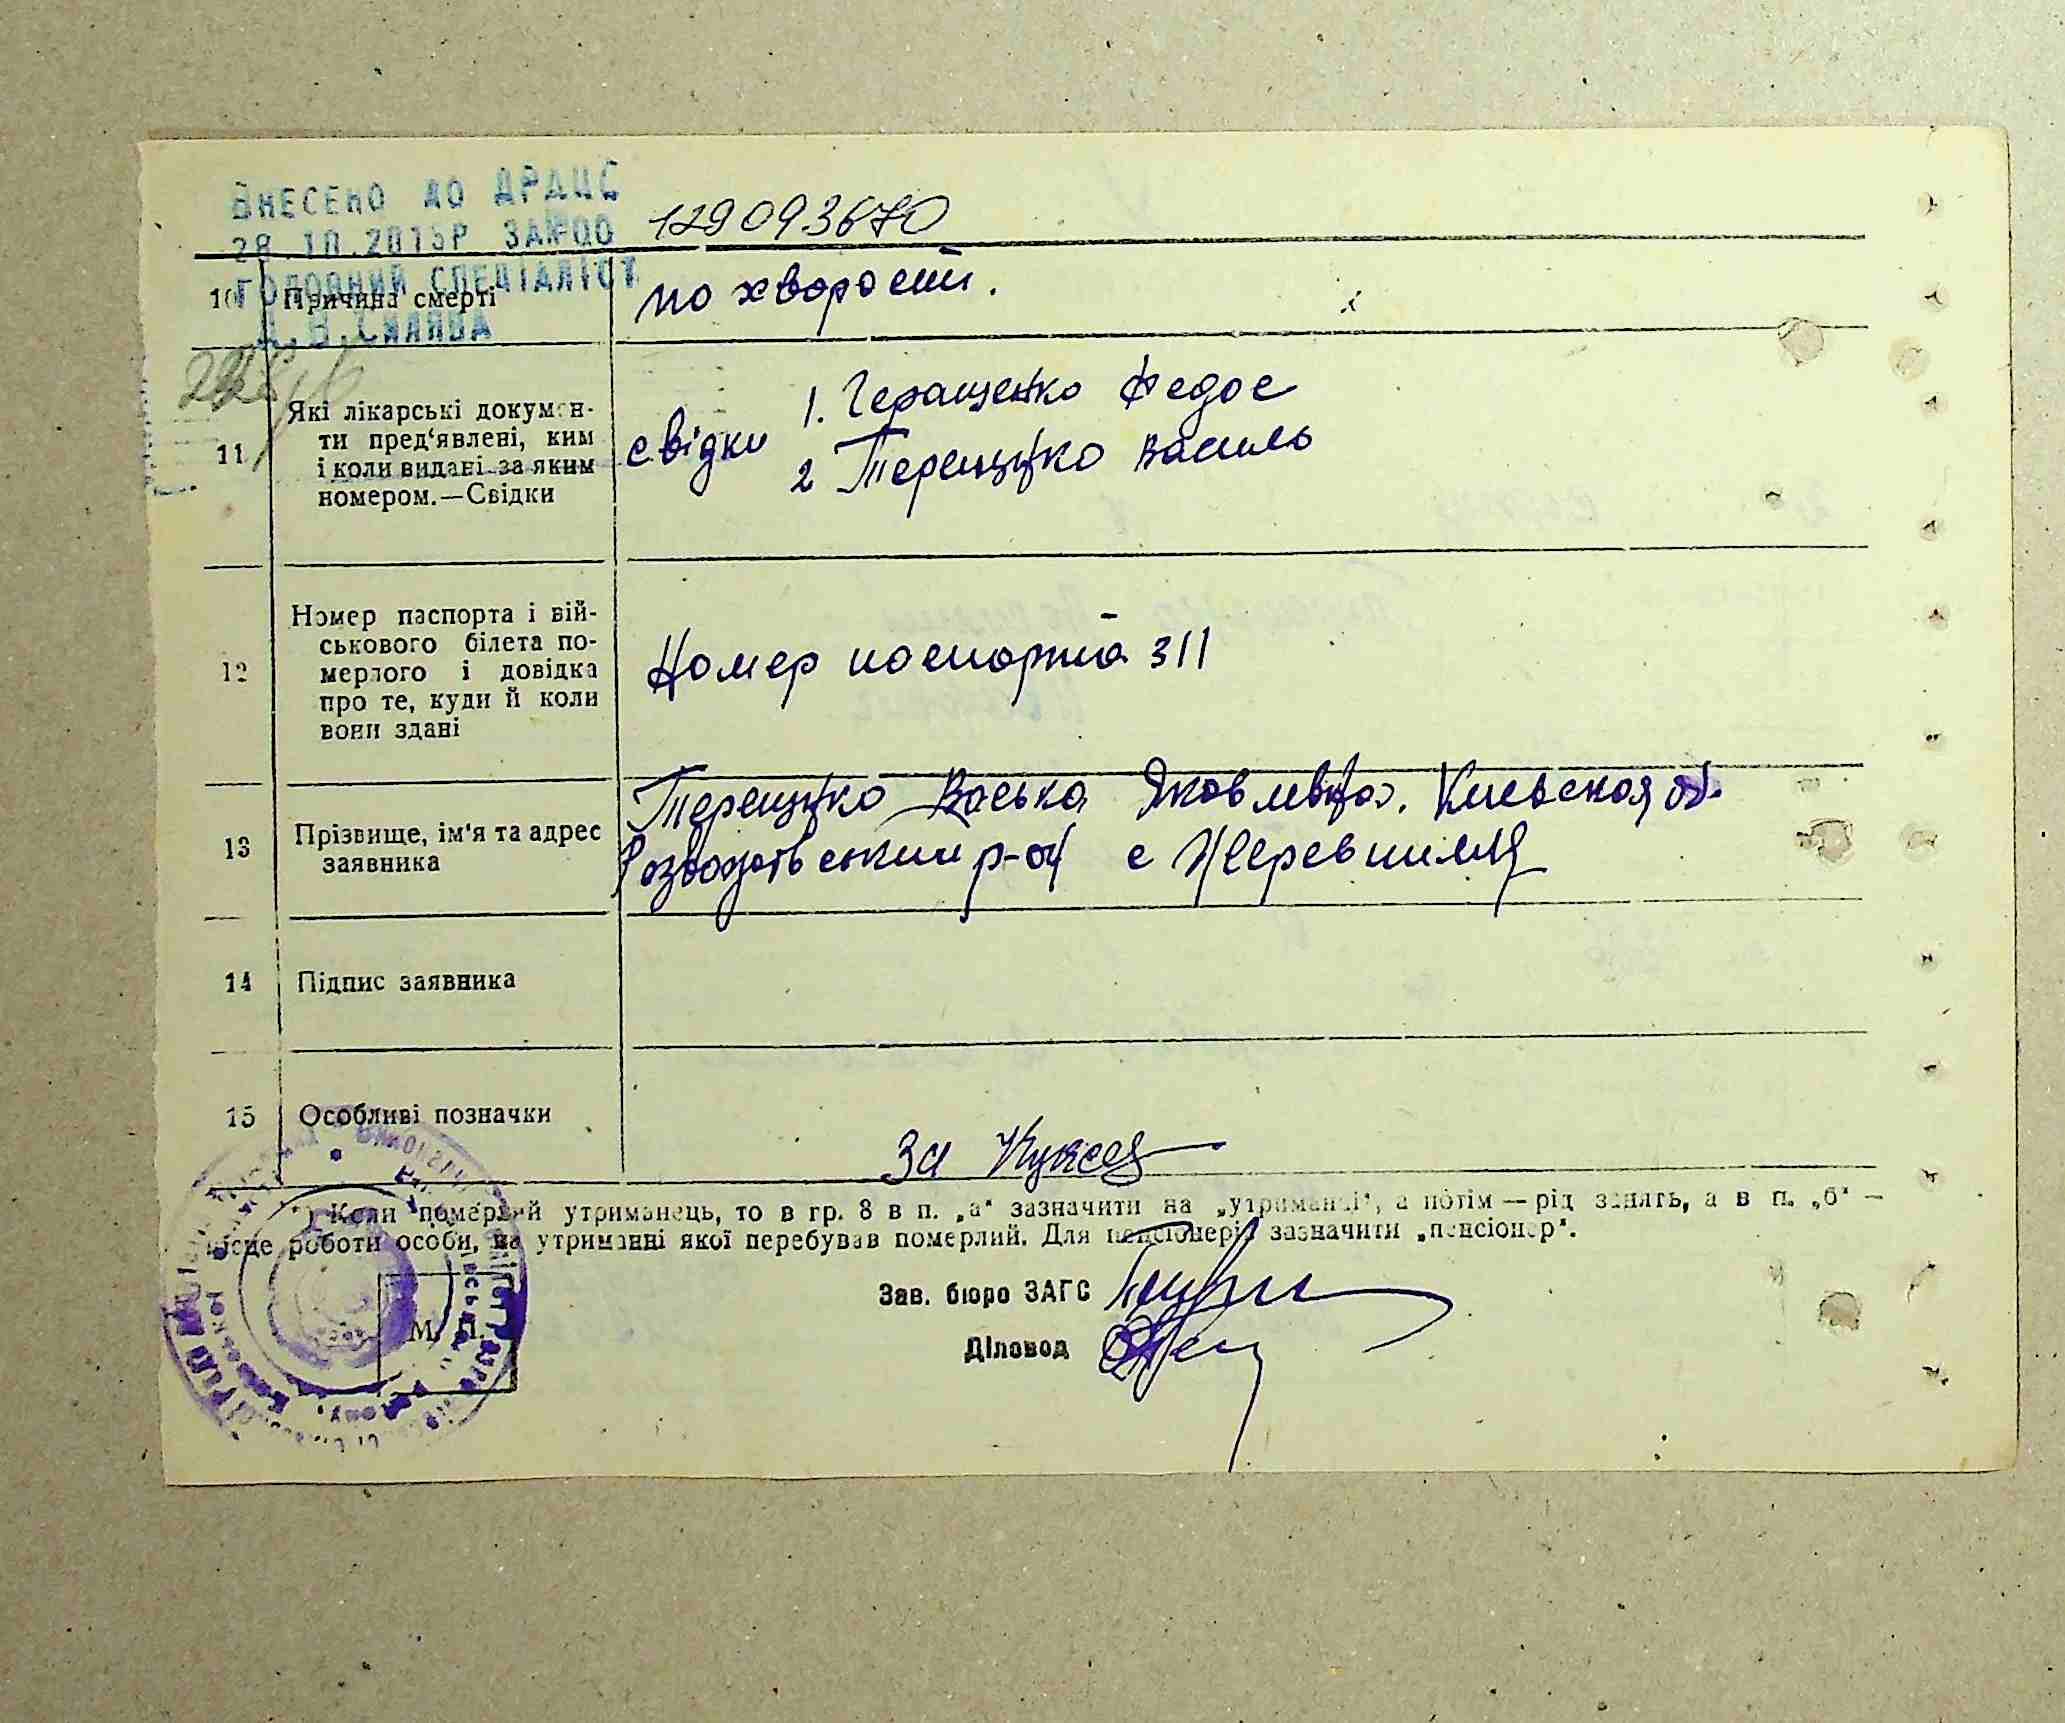 ВНЕСЕНО ДО ДРАЦС
28.10.2015Р ЗА №00 129093670
ГОЛОВНИЙ СПЕЦІАЛІСТ
10 Причина смерті
по хворости.
11 Які лікарські докумен-
ти пред‘явлені, ким
і коли видані за яким
номером.—Свідки
свідки 1. Геращенко Федос
2 Терещенко Василь
12 Номер паспорта і вій-
ськового білета по-
мерлого і довідка
про те, куди й коли
вони здані
Номер паспорта 311
13 Прізвище, ім'я та адрес
заявника
Терещенко Васька Яковлевна. Киевская об.
Розважевський р-он с
14 Підпис заявника
15 Особливі позначки
За
*) Коли померлий утриманець, то в гр. 8 в п. „а“ зазначити на „утриманці“, а потім — рід занять, а в п. „б“ —
місце роботи особи, на утриманні якої перебував померлий. Для пенсіонерів зазначити „пенсіонер“.
Зав. бюро ЗАГС
Діловод
М. П.